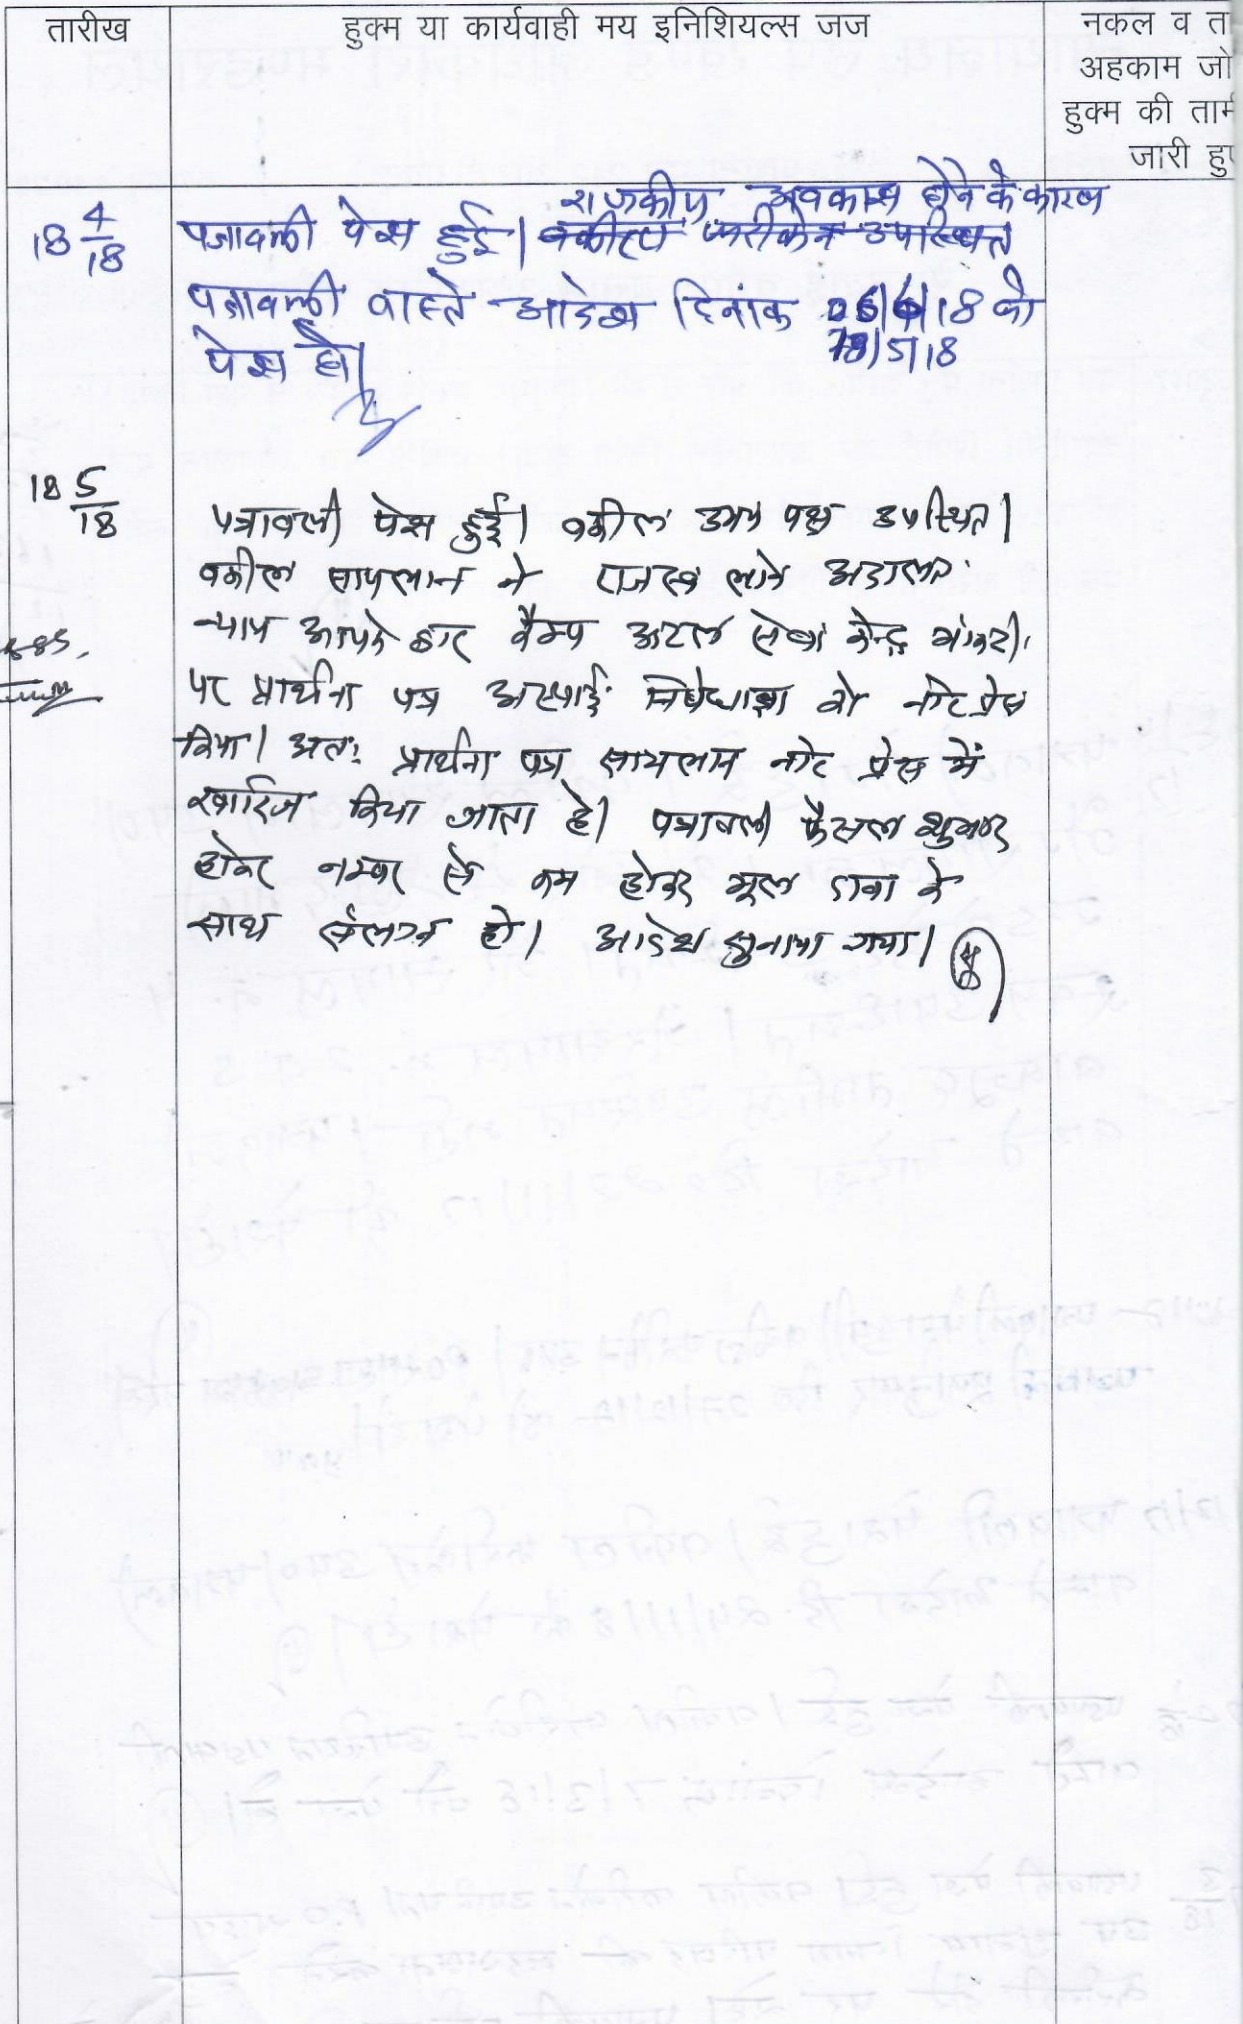 तारीख
हुक्म या कार्यवाही मय इनिशियल्स जज
नकल व ता
अहकाम जो
हुक्म की ताम
जारी हुए
राजकीय अवकाश होने के कारण
18 4/18 पत्रावली पेश हुई। वकील फरीकेन उपस्थित
पत्रावली वास्ते आदेश दिनांक 06/6/18 को
पेश हो। 18/5/18
18 5/18 पत्रावली पेश हुई। वकील उभय पक्ष उपस्थित।
वकील सायलान ने राजस्व लोक अदालत
न्याय आपके द्वार कैम्प अटल सेवा केन्द्र
पर प्रार्थना पत्र अस्थाई निषेधाज्ञा को नोट प्रेस
किया। अतः प्रार्थना पत्र सायलान नोट प्रेस में
खारिज किया जाता है। पत्रावली फैसल शुमार
होकर नम्बर से कम होकर मूल दावा के
साथ संलग्न हो। आदेश सुनाया गया।